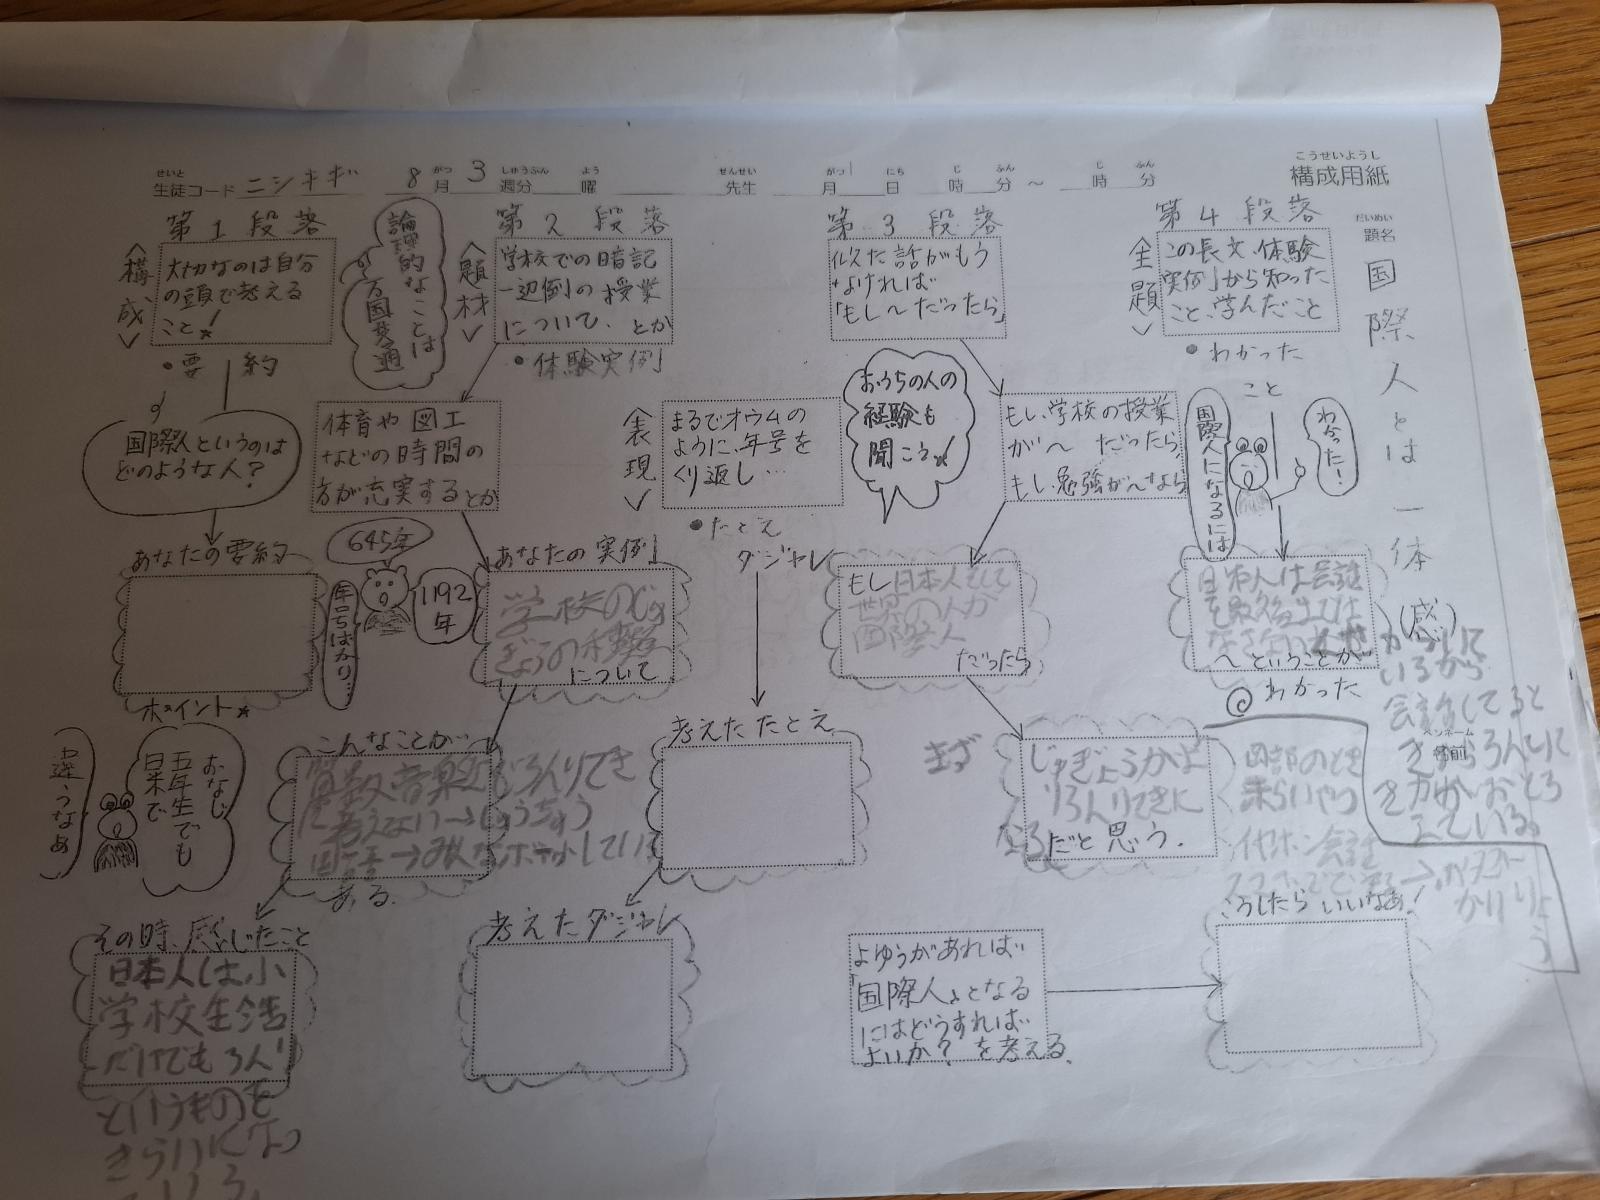 こうせいようし
構成用紙
せいと
生徒コード ニシキギ
8月3週分 曜
がつ しゅうぶん よう
せんせい
先生
がつ にち じ ふん じ ふん
月 日 時 分 ～ 時 分
だいめい
題名
国際人とは一体
(感)
ペンネーム
名前
第1段落
〈構成〉
大切なのは自分
の頭で考える
こと!
•要約
国際人というのは
どのような人?
あなたの要約
ポイント
論理的なことは
万国共通
第2段落
〈題材〉
学校での暗記
一辺倒の授業
について、とか
•体験実例
体育や図工
などの時間の
方が充実するとか
645年
1192年
年号ばかり…
あなたの実例
学校のじゅ
ぎょうの種類
について
こんなことが
ある。
おなじ
五年生でも
日米で
違うなぁ
その時、感じたこと
日本人は小
学校生活
だけでもろん
というものを
きらいになっ
〈表現〉
まるでオウムの
ように、年号を
くり返し…
•たとえ
ダジャレ
考えたたとえ
考えたダジャレ
第3段落
似た話がもう
なければ
「もし～だったら」
おうちの人の
経験も
聞こう
もし、学校の授業
が～だったら、
もし、勉強が～なら
もし日本人そして
世界の人が
国際人
だったら
まず
じゅぎょうがよ
りろんりてきに
なる
だと思う。
第4段落
〈主題〉
この長文、体験
実例から知った
こと、学んだこと
•わかった
こと
国際人になるには
わかった!
日本人は会話
～ということが
わかった
こうしたらいいなあ!
よゆうがあれば
「国際人」となる
にはどうすれば
よいか?を考える。